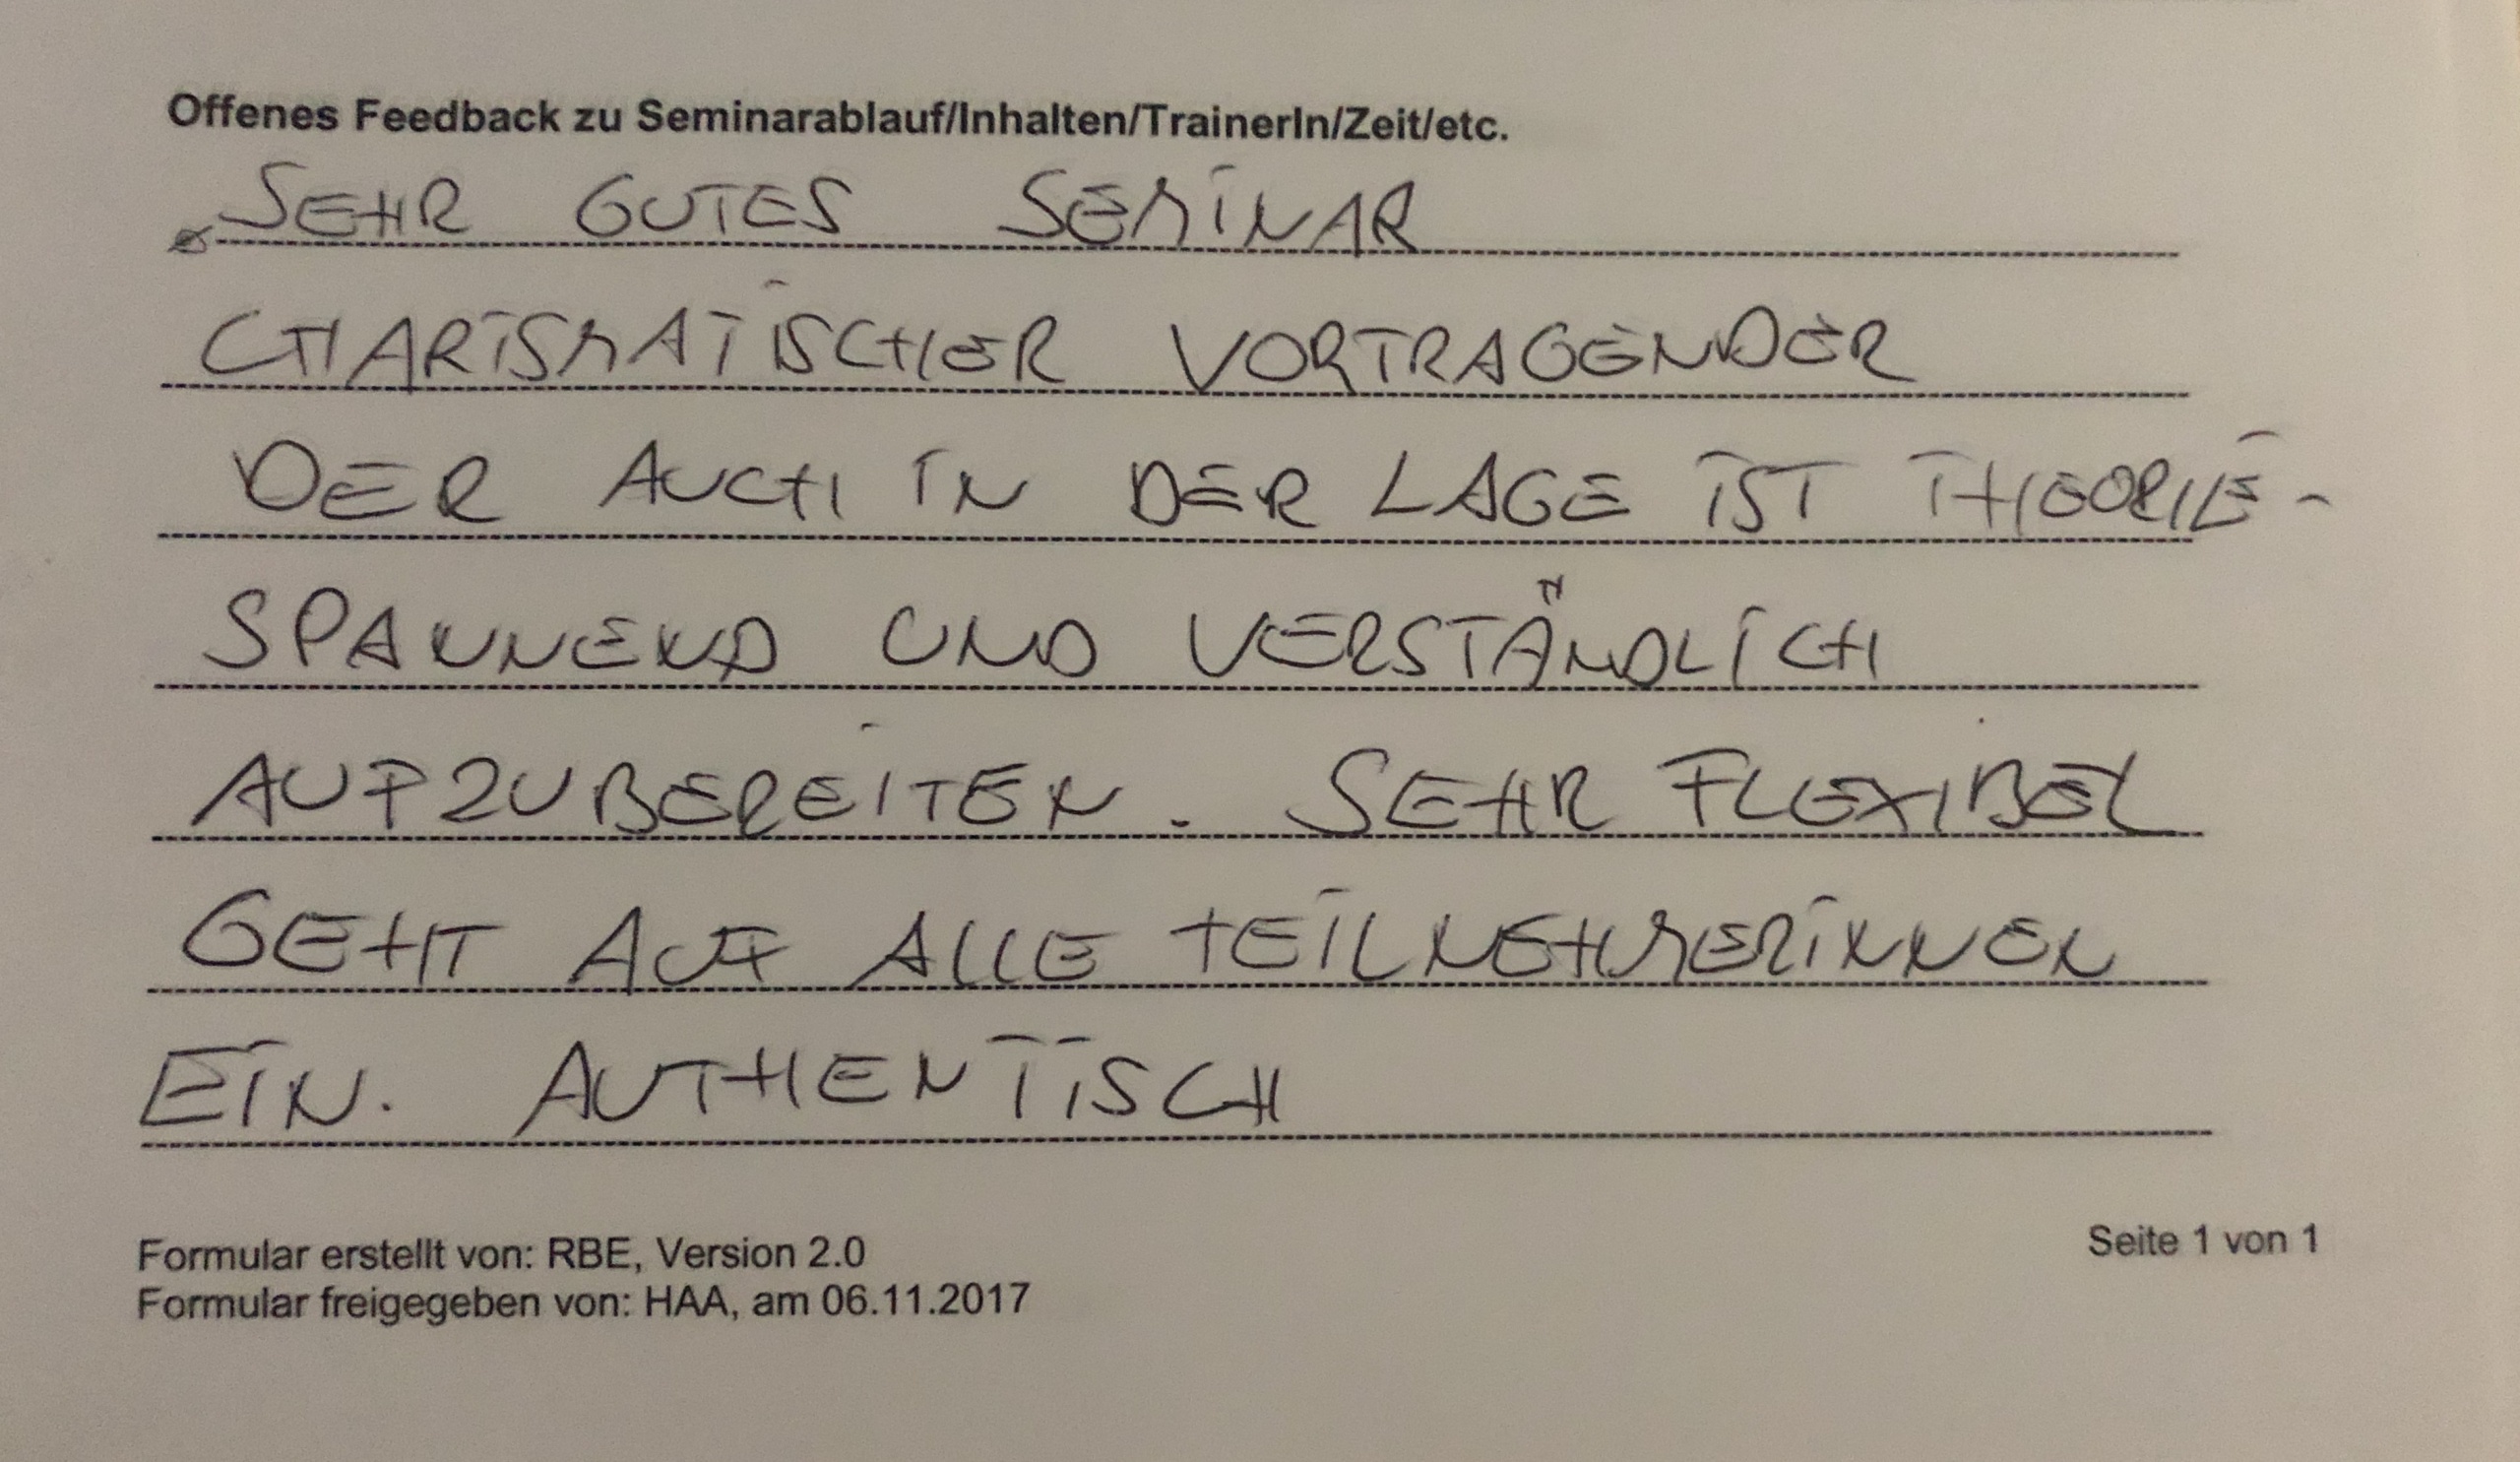 Offenes Feedback zu Seminarablauf/Inhalten/TrainerIn/Zeit/etc.
SEHR GUTES SEMINAR
CHARISMATISCHER VORTRAGENDER
DER AUCH IN DER LAGE IST THEORIE -
SPANNEND UND VERSTÄNDLICH
AUFZUBEREITEN. SEHR FLEXIBEL
GEHT AUF ALLE TEILNEHMERINNEN
EIN. AUTHENTISCH
Formular erstellt von: RBE, Version 2.0
Seite 1 von 1
Formular freigegeben von: HAA, am 06.11.2017